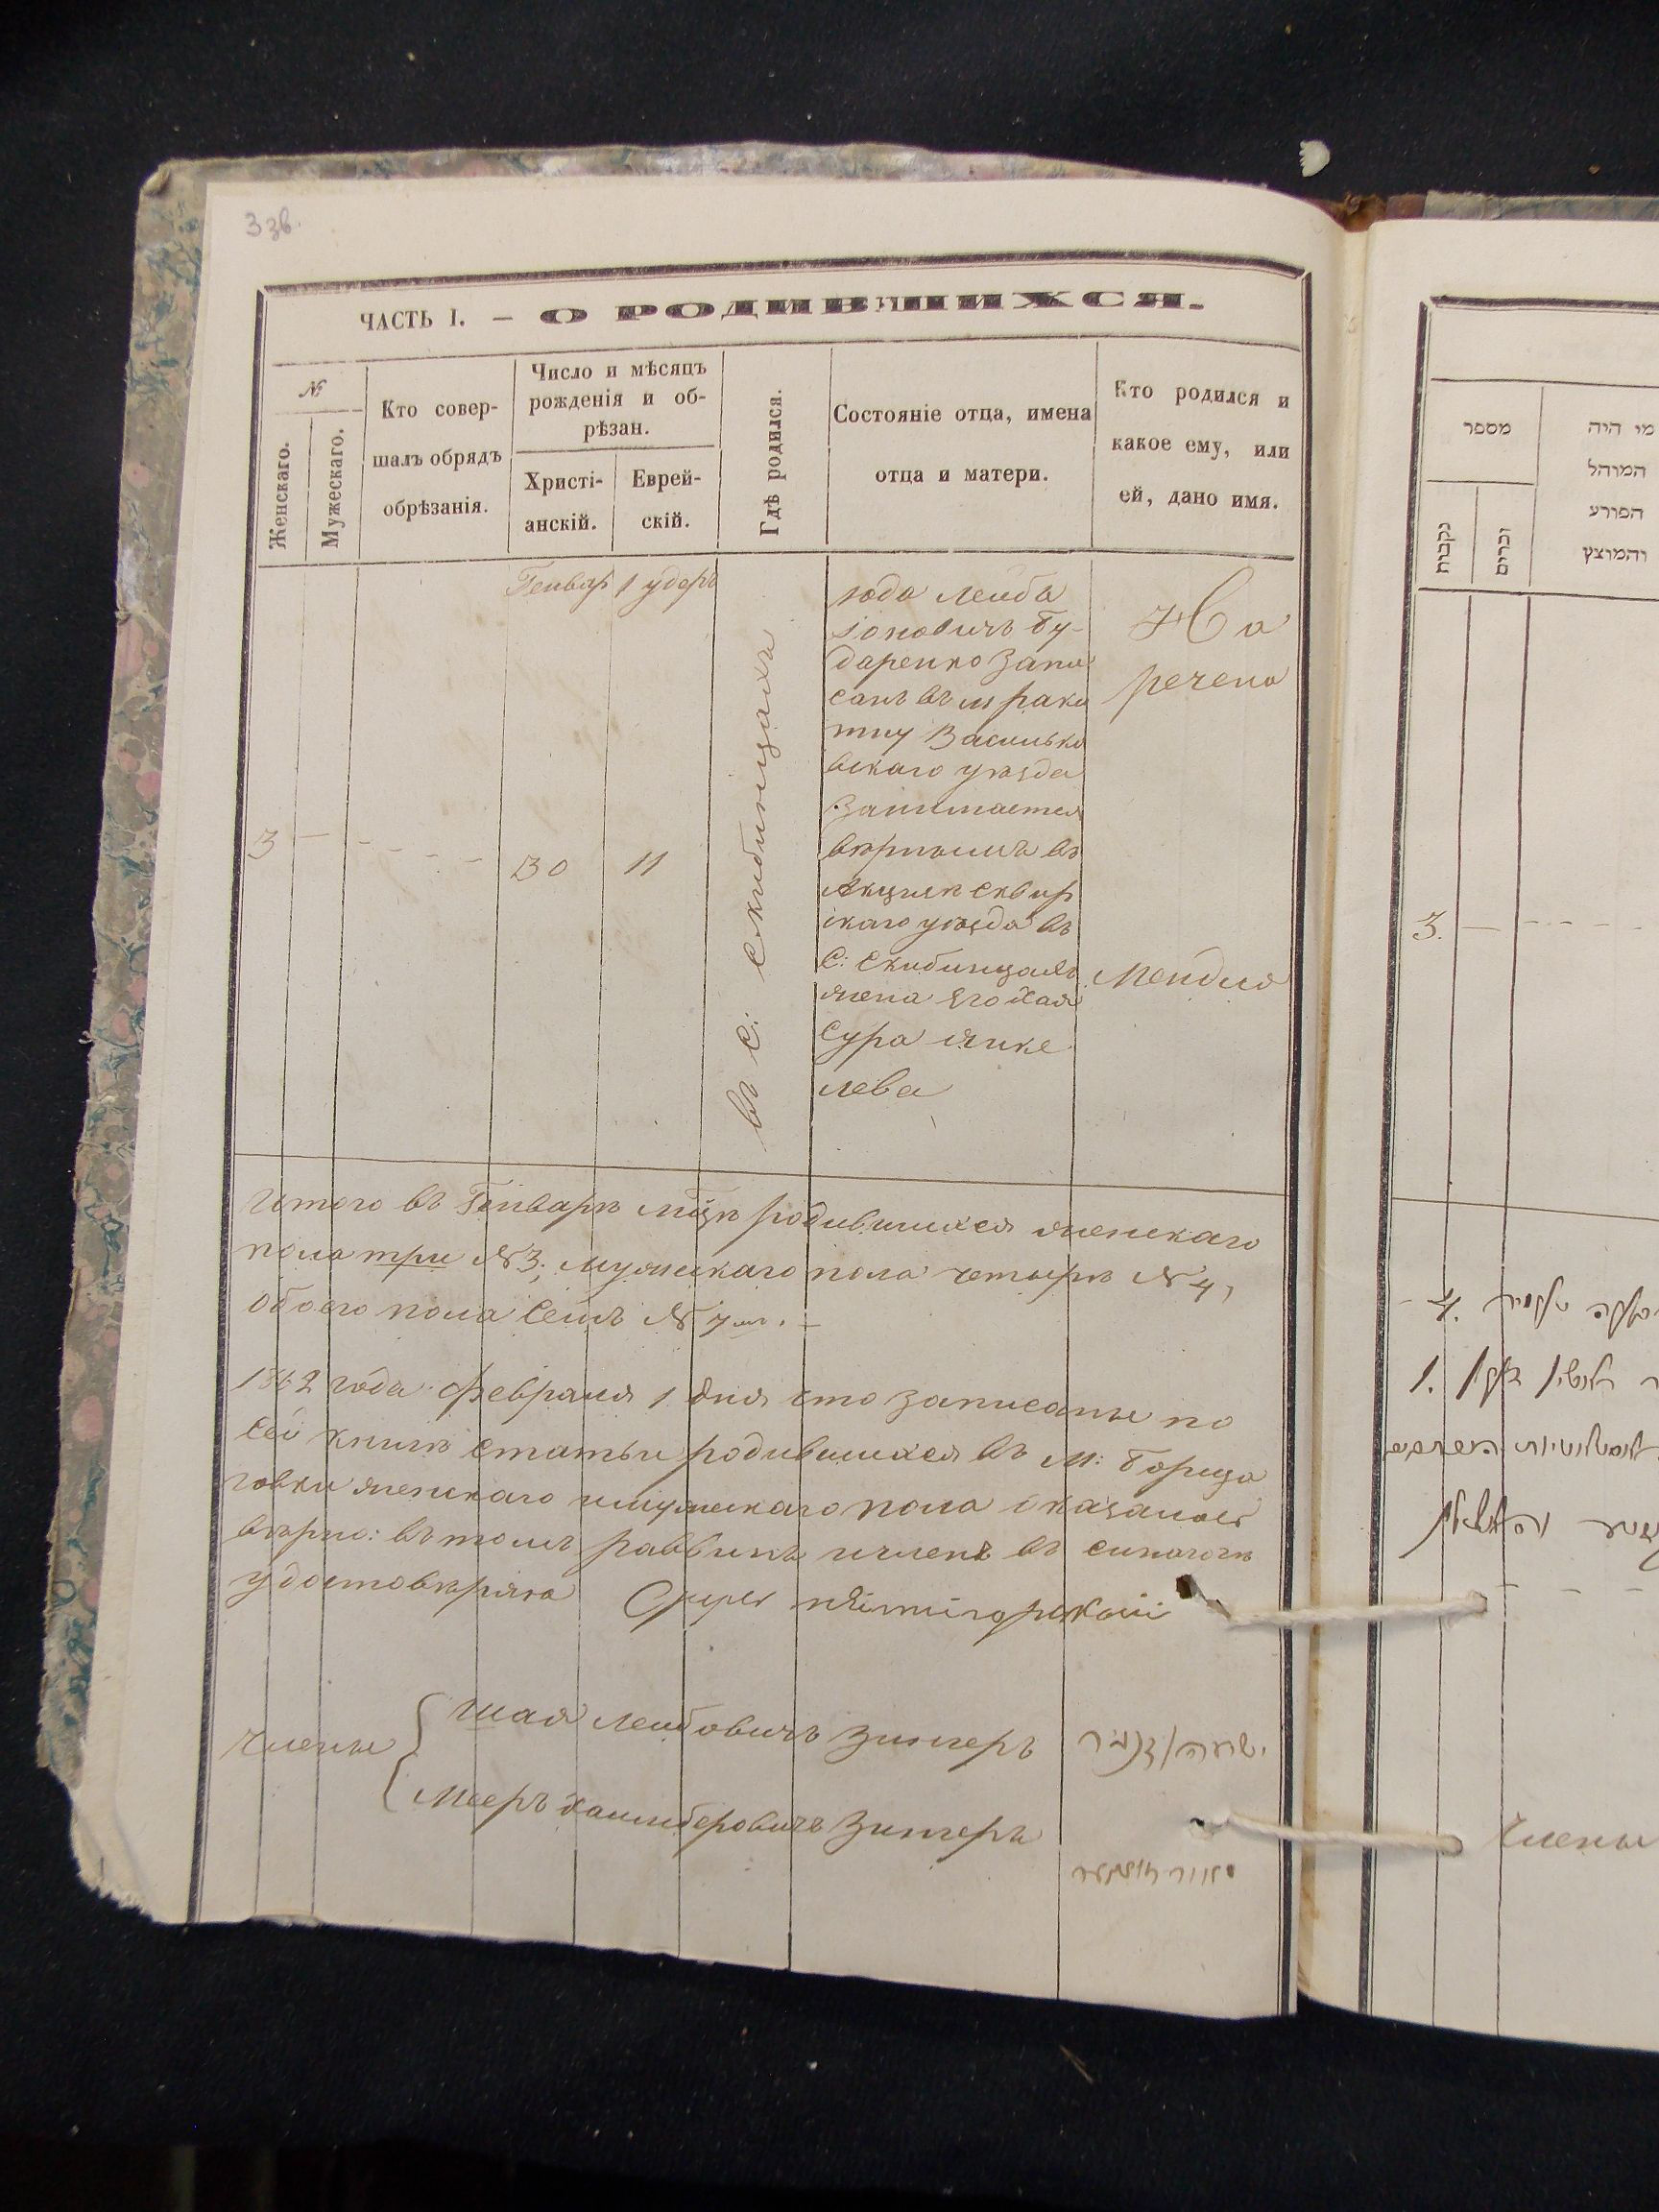 3 зв.
ЧАСТЬ I. — О РОДИВШИХСЯ.
№
Женскаго.
Мужескаго.
Кто совер-
шалъ обрядъ
обрѣзанія.
Число и мѣсяцъ
рожденія и об-
рѣзан.
Христі-
анскій.
Еврей-
скій.
Гдѣ родился.
Состояніе отца, имена
отца и матери.
Кто родился и
какое ему, или
ей, дано имя.
Генвар 1 удеръ
3 — - - - - 30 11
въ с: скибинцахъ
юда лейба
іоновичъ бу-
даренко запи
санъ въ м раки
тну Василько
вскаго уѣзда
занимается
вѣрнымъ въ
Акцизѣ сквир
скаго уѣзда въ
с: скибинцахъ
жена его хая
сура янке
лева
На
речена
Мейдля
Итого въ Генварѣ мцѣ родившихся женскаго
пола три №3, мужескаго пола четырѣ №4,
обоего пола семъ № 7мъ. —
1862 года февраля 1 дня что записаны по
сей книгѣ статьи родившихся въ М: борща
говки женскаго и мужескаго пола оказалось
вѣрно: въ томъ раввинъ и члены въ синагогѣ
удостовѣряю
Члены
шая лейбовичъ зингеръ
Мееръ хаимберовичъ зингеръ
מספר
נקבות
זכרים
מי היה
המוהל
הפורע
והמוצץ
3. — - - -
Члены